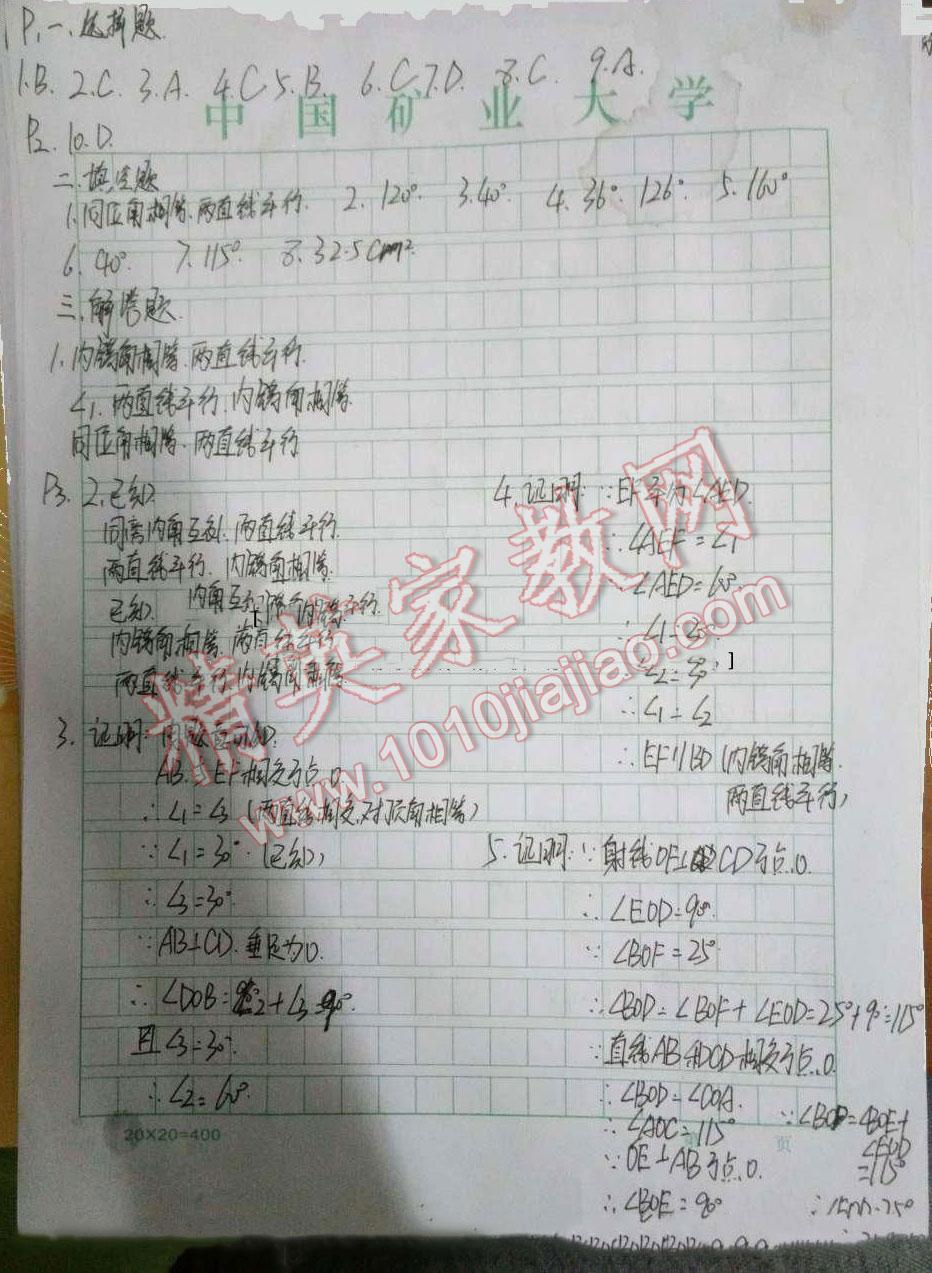 P1 一、选择题
1.B. 2.C. 3.A. 4.C 5.B. 6.C 7.D. 8.C. 9.A.
中国矿业大学
P2. 10.D.
二、填空题
1.同位角相等、两直线平行. 2. 120°. 3.40° 4. 36° 126° 5. 160°
6. 40° 7. 115° 8. 32.5cm²
三、解答题.
1. 内错角相等、两直线平行.
∠1. 两直线平行、内错角相等.
同位角相等、两直线平行
P3. 2. 已知
同旁内角互补、两直线平行.
两直线平行、内错角相等.
已知.
内错角相等、两直线平行.
两直线平行、内错角相等
3. 证明: 由题意可知
AB、EF相交于点O.
∴∠1=∠3 (两直线相交,对顶角相等)
∵∠1=30° (已知)
∴∠3=30°
∵AB⊥CD. 垂足为O.
∴∠DOB=∠2+∠3=90°
且∠3=30°
∴∠2=60°
4. 证明: ∵EF平分∠AED.
∴∠AEF=∠1
∵∠AED=60°
∴∠1=30°
∵∠2=30°
∴∠1=∠2
∴EF∥BD (内错角相等.
两直线平行)
5. 证明: ∵射线OF⊥CD于点O.
∴∠EOD=90°
∵∠BOF=25°
∴∠BOD=∠BOF+∠EOD=25°+90°=115°
∵直线AB和CD相交于点O.
∴∠BOD=∠COA.
∴∠AOC=115°
∵OE⊥AB于点O.
∴∠BOE=90°
∵∠BOD=∠BOE+
∠EOD
=115°
20×20=400
页
精英家教网
www.1010jiajiao.com